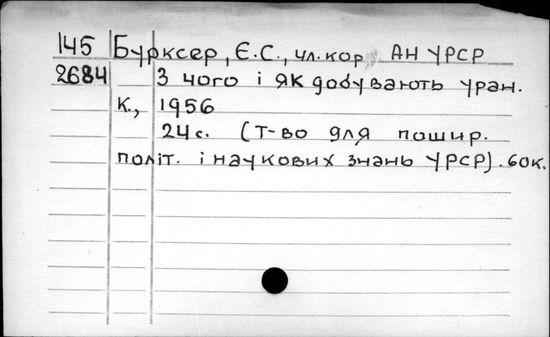 145 Бурксер, Є.С., чл.кор АН УРСР
2684 З чого і як добувають уран.
К., 1956
24с. (Т-во для пошир.
політ. і наукових знань УРСР). 60к.